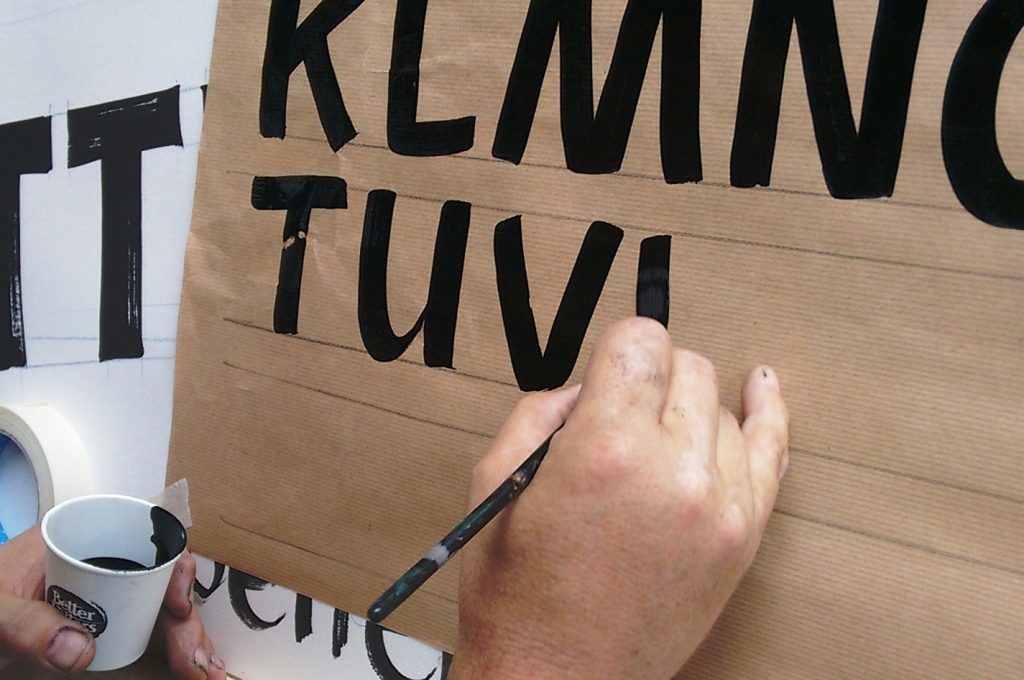 KLMNO
TUV
TT
Better